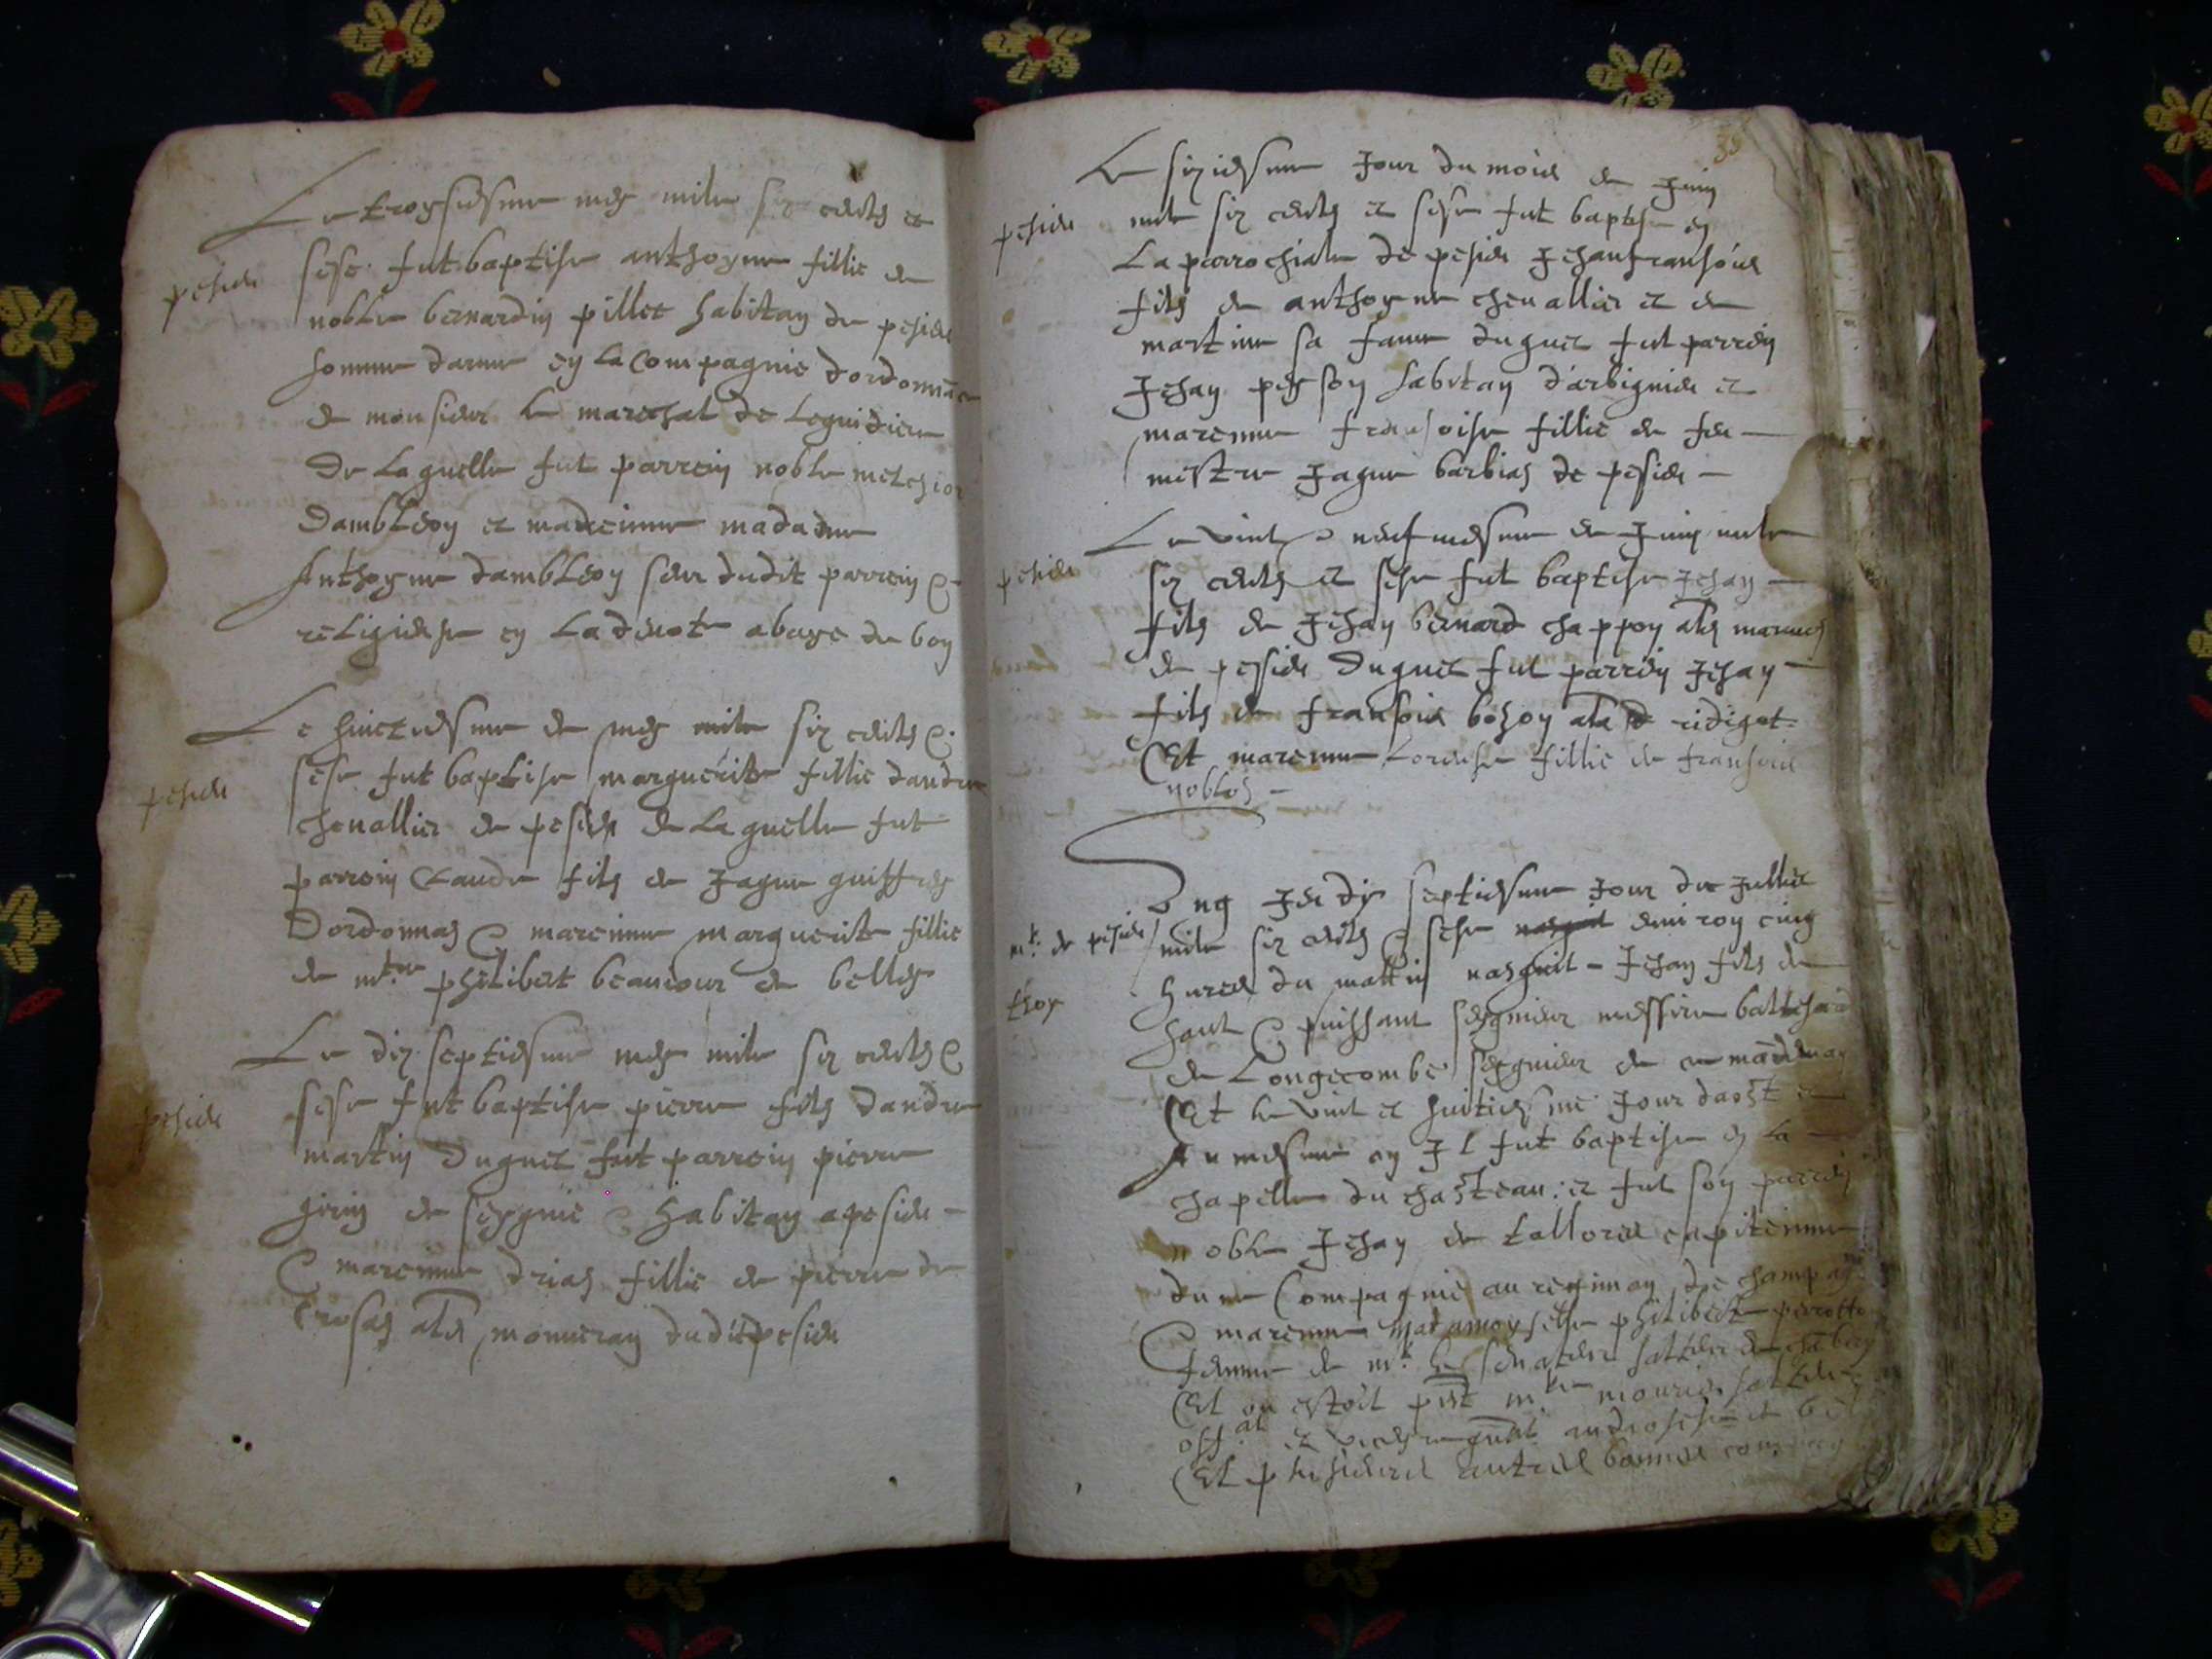 Le troysiesme mey mile six cents et
pesieu
sese fut baptise anthoyne fillie de
noble bernardin pillet habitan de pesieu
homme darme en la compagnie dordonnāce
de monsieur le mareschal de Leguidiere
De Laquelle fut parrein noble melchior
Dambleon et marreinne madame
Anthoyne dambleon seur dudit parrein &
religieuse en La devote abaye de bon
Le huictiesme de mey mile six cents &
pesieu
sese fut baptise marguerite fillie dandre
chevallier de pesieu de Laquelle fut
parrein Claude fils de Jaque guiffrey
Dordonnas & mareinne marguerite fillie
de mtre philibert beaucour de belley
Le dix septiesme mey mile six cents &
pesieu
sese fut baptise pierre fils dandre
martin Duquel fut parrein pierre
de seyguie & habitan a pesieu
& mareinne fillie de pierre de
crosas als monneran dudit pesieu
35
Le siziesme Jour du mois de Juin
pesieu
mile six cents et sese fut baptise en
La parrochiale de pesieu Jehan fransois
fils de anthoyne chevallier et de
martine sa fame duquel fut parrein
Jehan peysson habitan d'arbignieu et
mareinne fransoise fillie de feu
mestre Jaque barbias de pesieu
Le vint & neufuiesme de Juin mile
pesieu
six cents et sese fut baptise Jehan
fils de Jehan bernard chappon als
de pessieu Duquel fut parrein Jehan
fils de fransois bozon als
Et mareinne fillie de fransois
noblos
Ung Jeudy septiesme Jour de Julliet
mr. de pesieu
mile six cents & sese nasquit environ cinq
thoy
hures du mattin nasquit Jehan fils de
haut & puissant seygnieur messire baltesard
de Longecombe seygnieur de
Et le vint et huitiesme Jour daost et
Au mesme an Il fut baptise en La
chapelle du chasteau: et fut son parrein
noble Jehan de tallores capiteinne
dune Compagnie au regiman de champag
& mareinne Madamoyselle philiberte perrotto
femme de mr. le senateur de
Et en estoit pnt
et
Et plusieurs autres bonnes